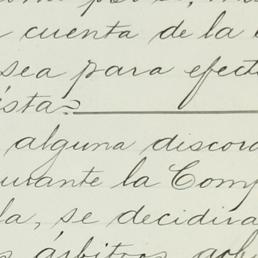 cuenta de la
sea para efect
ista
alguna discor
urante la Comp
la, se decidira
árbitros